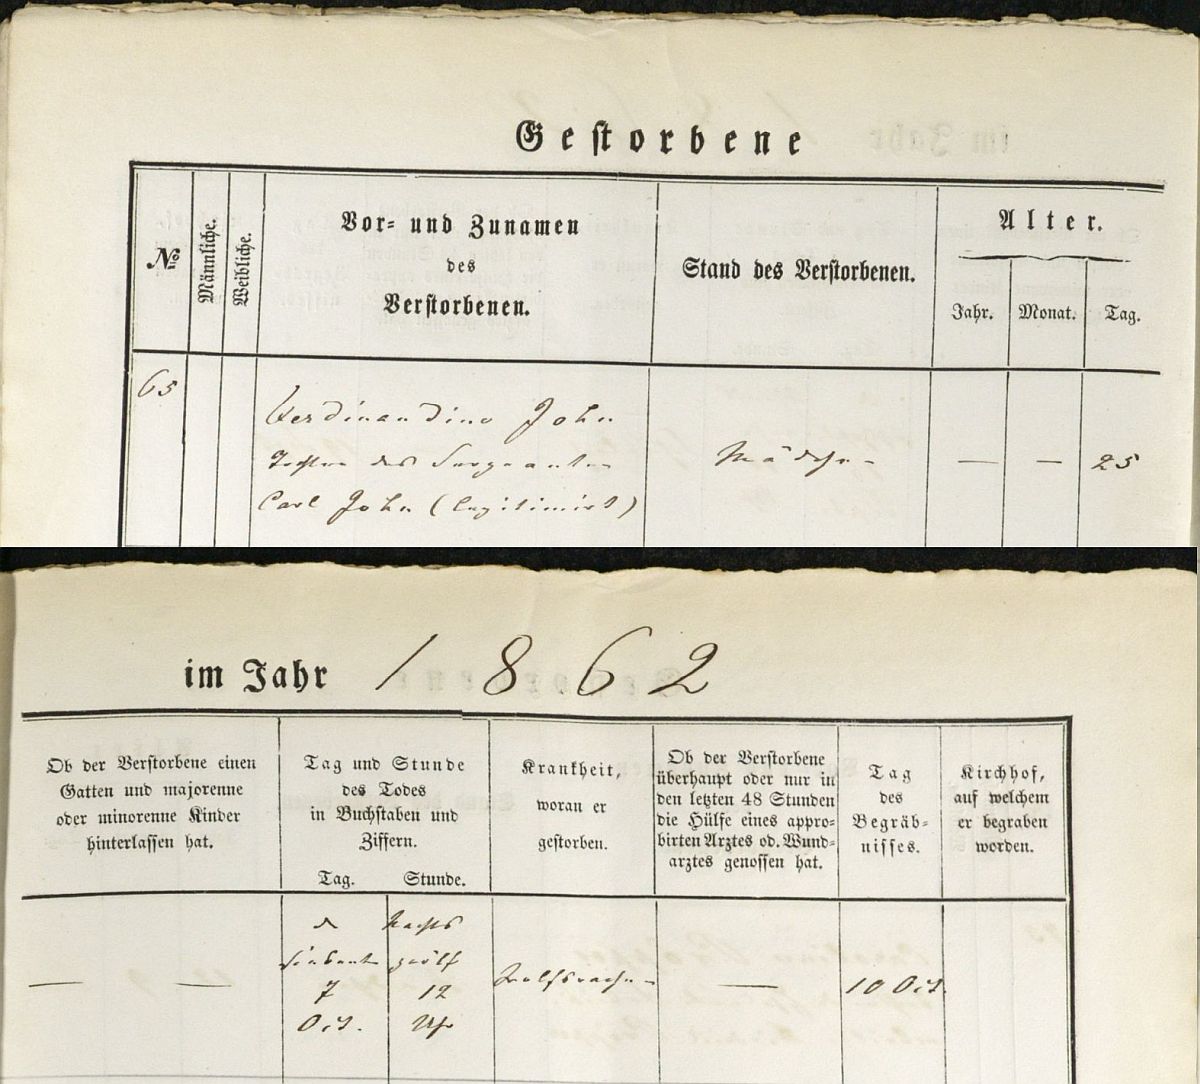 Gestorbene
No. Männliche. Weibliche.
Vor= und Zunamen
des
Verstorbenen.
Stand des Verstorbenen.
Alter.
Jahr. Monat. Tag.
65
Ferdinandine John
Tochter des Sergeanten
Carl John (legitimirt)
Mädchen
— — 25
im Jahr 1862
Ob der Verstorbene einen
Gatten und majorenne
oder minorenne Kinder
hinterlassen hat.
Tag und Stunde
des Todes
in Buchstaben und
Ziffern.
Tag. Stunde.
Krankheit,
woran er
gestorben.
Ob der Verstorbene
überhaupt oder nur in
den letzten 48 Stunden
die Hülfe eines appro=
birten Arztes od. Wund=
arztes genossen hat.
Tag
des
Begräb=
nisses.
Kirchhof,
auf welchem
er begraben
worden.
— —
d Nachts
siebent zwölf
7 12
Oct. Uhr
—
10 Oct.